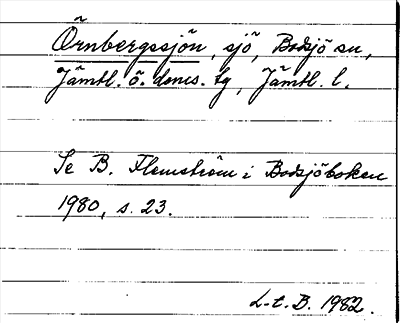 Örnbergssjön, sjö, Bodsjö sn,
Jämtl. ö. doms. tg, Jämtl. l.
Se B. Flemström i Bodsjöboken
1980, s. 23.
L.t.B. 1982.